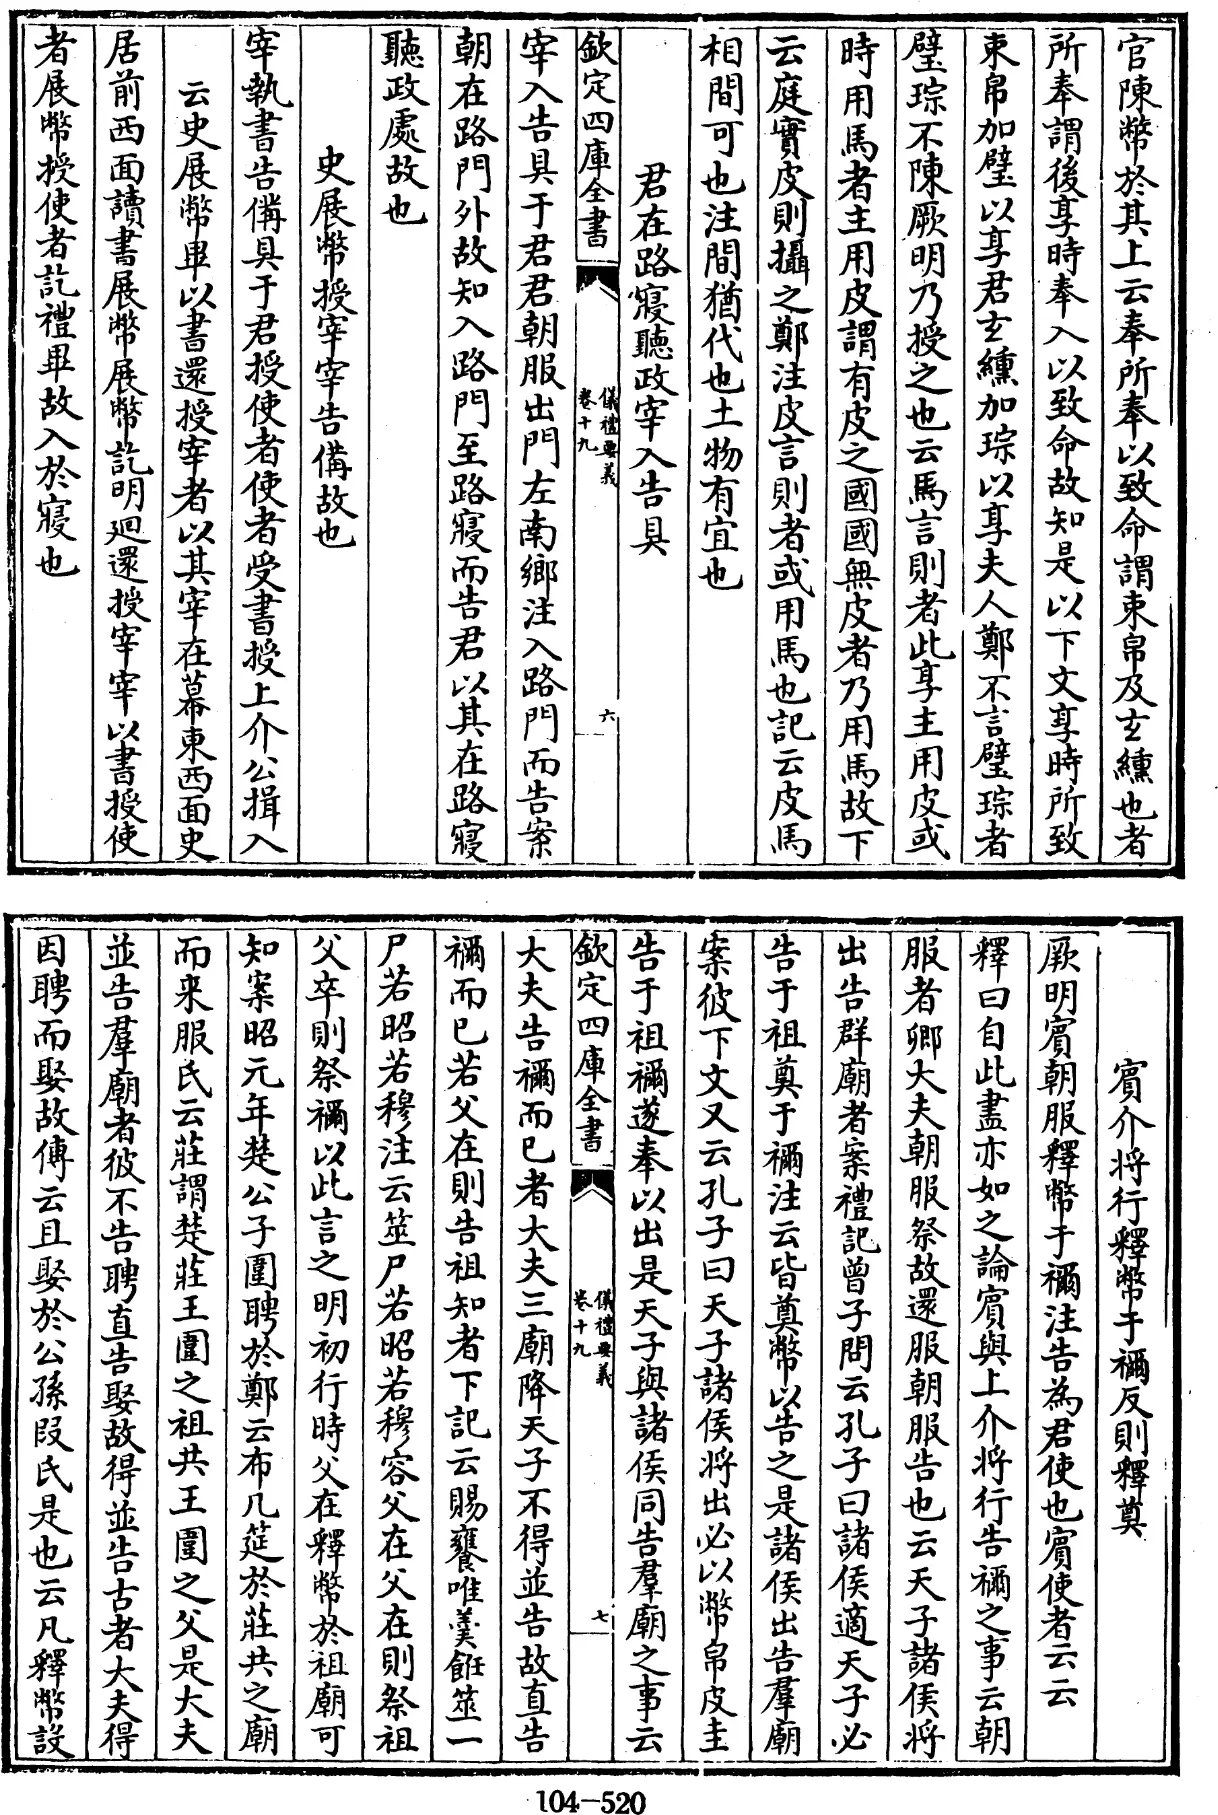 官陳幣於其上云奉所奉以致命謂束帛及玄纁也者
所奉謂後享時奉入以致命故知是以下文享時所致
束帛加璧以享君玄纁加琮以享夫人鄭不言璧琮者
璧琮不陳厥明乃授之也云馬言則者此享主用皮或
時用馬者主用皮謂有皮之國國無皮者乃用馬故下
云庭實皮則攝之鄭注皮言則者或用馬也記云皮馬
相間可也注間猶代也土物有宜也
君在路寢聽政宰入告具
欽定四庫全書
儀禮要義
卷十九
六
宰入告具于君君朝服出門左南鄉注入路門而告案
朝在路門外故知入路門至路寢而告君以其在路寢
聽政處故也
史展幣授宰宰告備故也
宰執書告備具于君授使者使者受書授上介公揖入
云史展幣畢以書還授宰者以其宰在幕東西面史
居前西面讀書展幣展幣訖明迴還授宰宰以書授使
者展幣授使者訖禮畢故入於寢也
賓介將行釋幣于禰反則釋奠
厥明賓朝服釋幣于禰注告為君使也賓使者云云
釋曰自此盡亦如之論賓與上介將行告禰之事云朝
服者卿大夫朝服祭故還服朝服告也云天子諸侯將
出告群廟者案禮記曾子問云孔子曰諸侯適天子必
告于祖奠于禰注云皆奠幣以告之是諸侯出告羣廟
案彼下文又云孔子曰天子諸侯將出必以幣帛皮圭
告于祖禰遂奉以出是天子與諸侯同告羣廟之事云
欽定四庫全書
儀禮要義
卷十九
七
大夫告禰而已者大夫三廟降天子不得並告故直告
禰而已若父在則告祖知者下記云賜饔唯羹飪筮一
尸若昭若穆注云筮尸若昭若穆容父在父在則祭祖
父卒則祭禰以此言之明初行時父在釋幣於祖廟可
知案昭元年楚公子圍聘於鄭云布几筵於莊共之廟
而來服氏云莊謂楚莊王圍之祖共王圍之父是大夫
並告羣廟者彼不告聘直告娶故得並告古者大夫得
因聘而娶故傳云且娶於公孫段氏是也云凡釋幣設
104-520